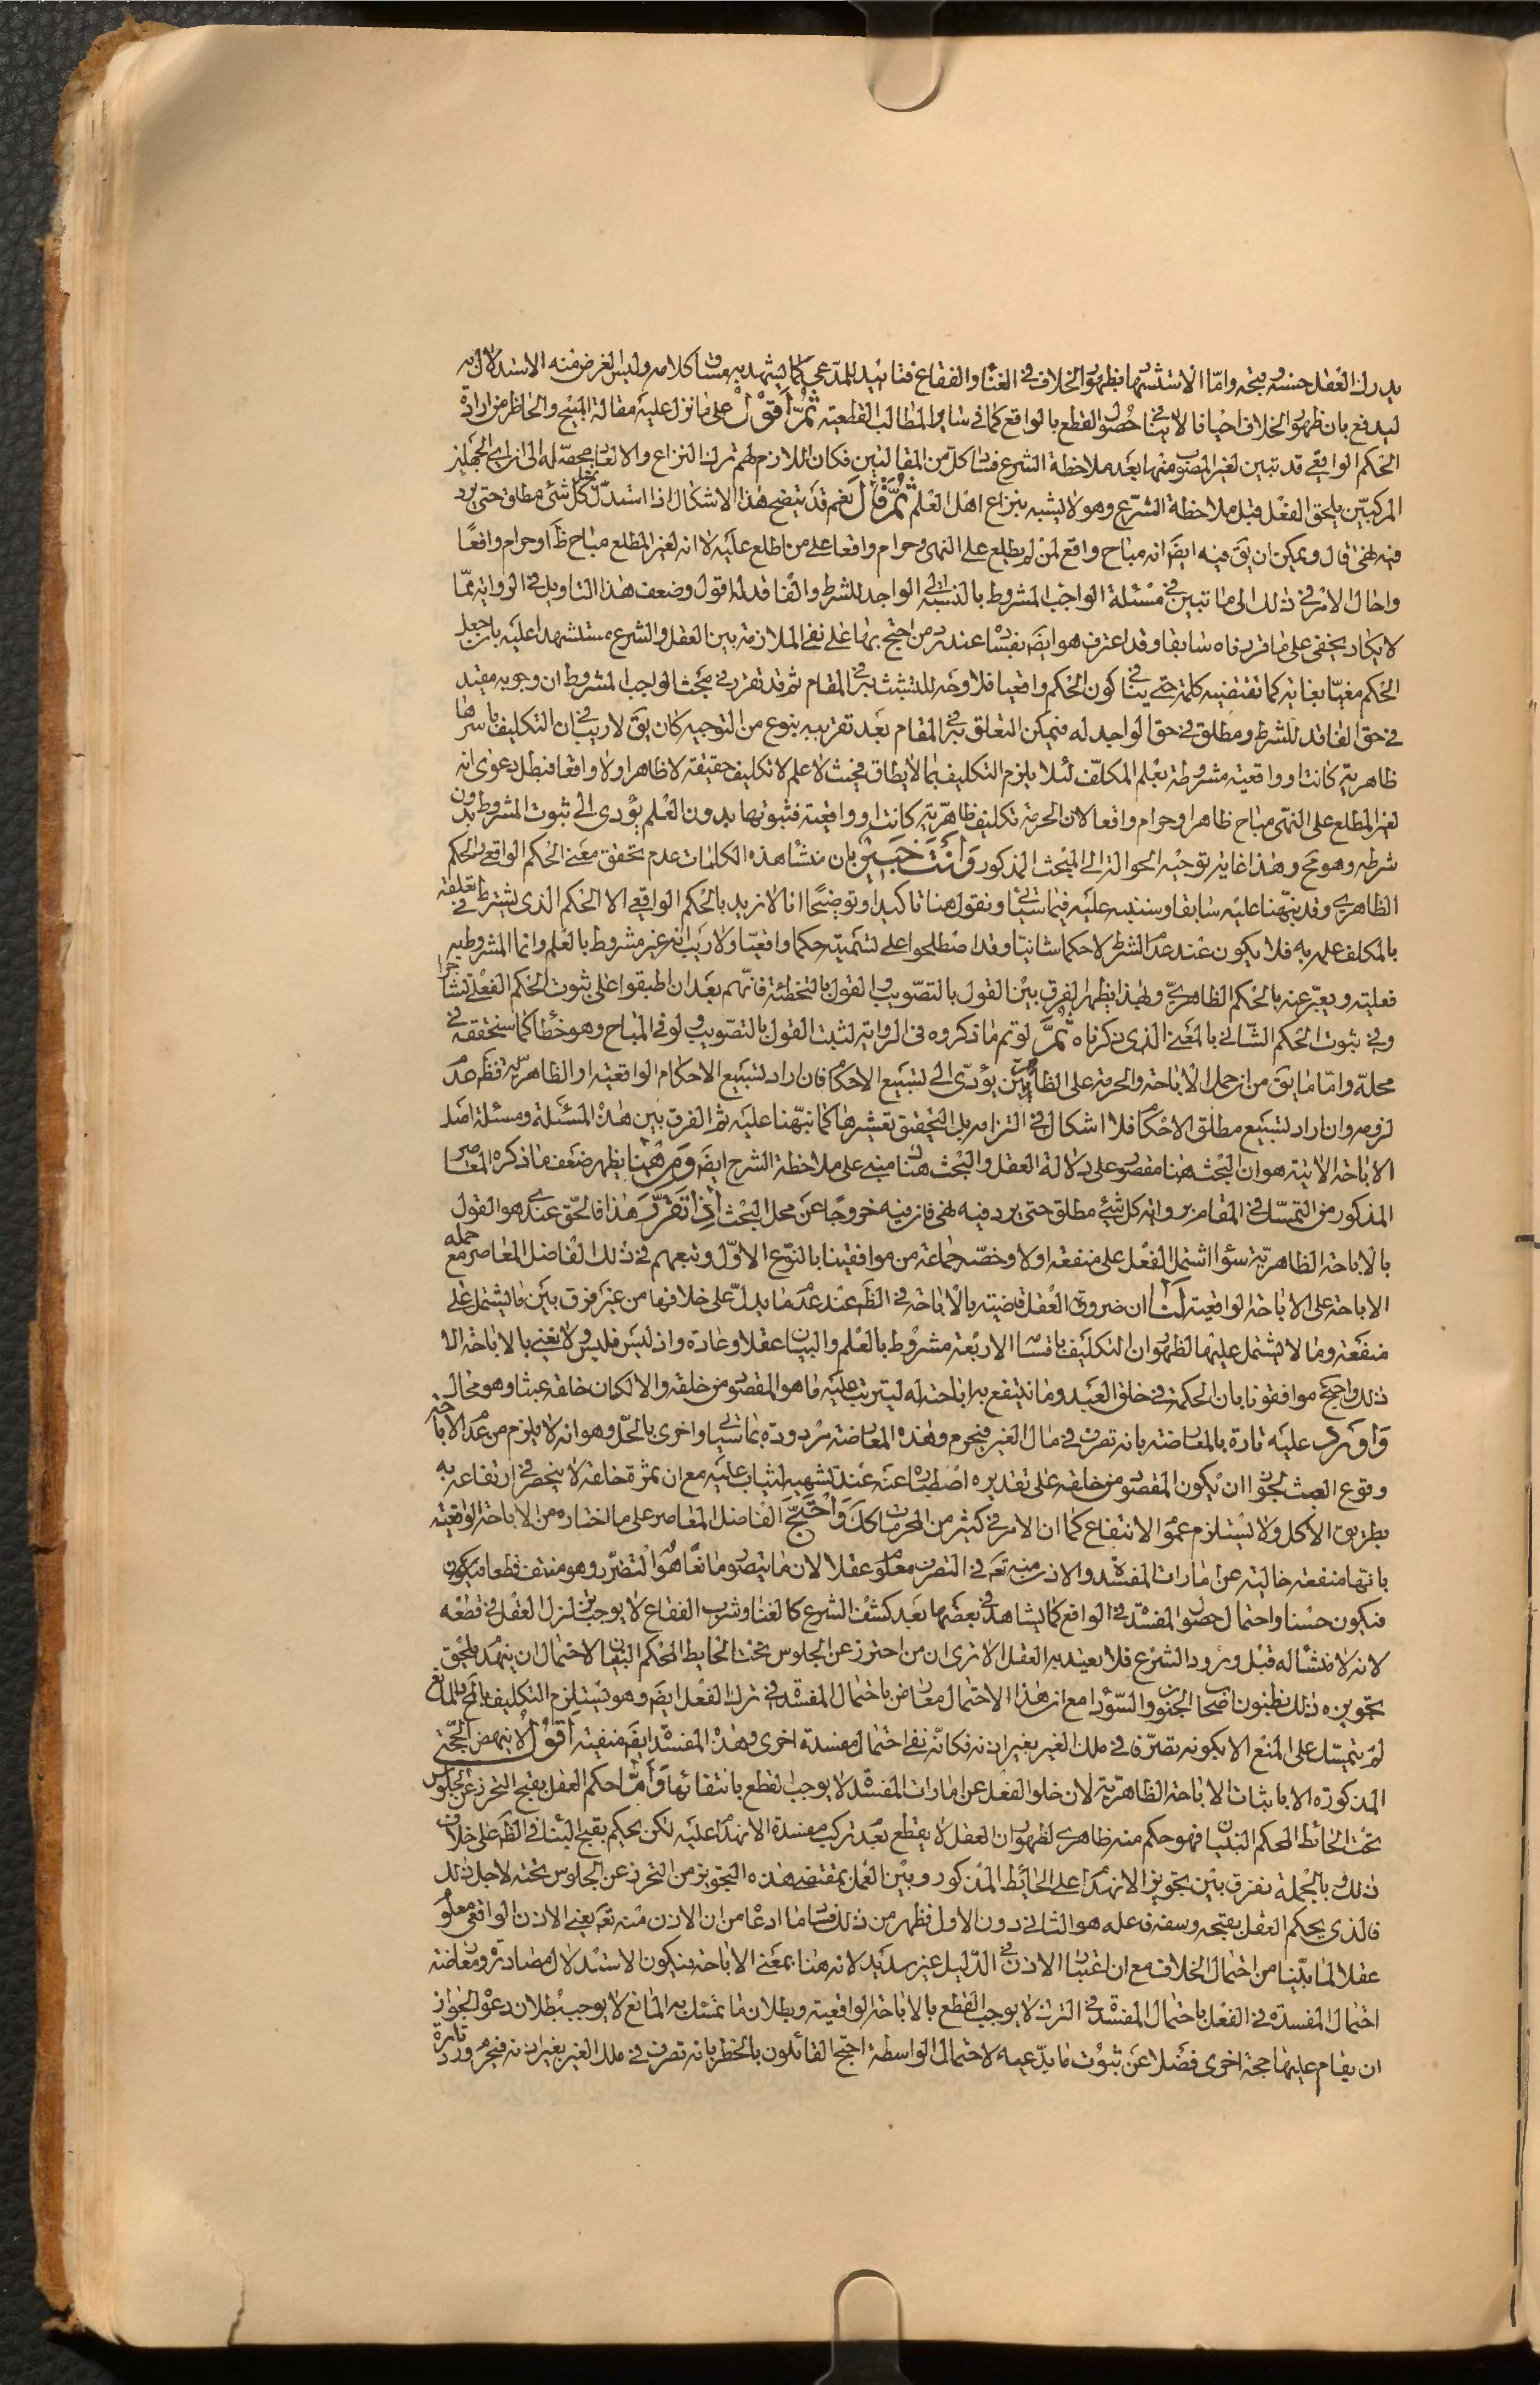 يدرك العقل حسنه وقبحه واما الاستشهاد بظهور الخلاف في الغناء والفقاع فتاييد للمدعى كما يشهد به مساق كلامه وليس الغرض منه الاستدلال به
ليدفع بان ظهور الخلاف احيانا لا ينافي حصول القطع بالواقع كما في ساير المطالب القطعية ثمّ أقول على ما نزل عليه مقالة المبيح والحاظر من ارادة
الحكم الواقعي قد تبين لغير المصوب منهما بعد ملاحظة الشرع فساد كل من المقالتين فكان اللازم لهم ترك النزاع والالعاب
المركبين يلحق الفعل قبل ملاحظة الشرع وهو لا يشبه بنزاع اهل العلم ثمّ قال نعم قد يتضح هذا الاشكال اذا استدل بمثل كل شئ مطلق حتى يرد
فيه نهى قال ويمكن ان يق فيه ايضا انه مباح واقع لمن لم يطلع على النهى وحرام واقعا على من اطلع عليه لا انه لغير المطلع مباح ظا وحرام واقعًا
واحال الامر في ذلك الى ما تبين في مسئلة الواجب المشروط بالنسبة الى الواجد للشرط والفاقد له اقول وضعف هذا التاويل في الرواية مما
لا يكاد يخفى على ما قررناه سابقا وقد اعترف هو ايضا بفساده عند رد من احتج بها على نفى الملازمة بين العقل والشرع مستشهدا عليه بان جعل
الحكم مغيّا بغاية كما تقتضيه كلمة حتى ينافي كون الحكم واقعيا فلا وجه للتشبث به في المقام ثم قد تقرر في مبحث الواجب المشروط ان وجوبه مقيد
في حق الفاقد للشرط ومطلق في حق الواجد له فيمكن التعلق به في المقام بعد تقريبه بنوع من التوجيه كان يق لا ريب في ان التكليف باسرها
ظاهرية كانت او واقعية مشروطة بعلم المكلف لئلا يلزم التكليف بما لا يطاق فحيث لا علم لا تكليف حقيقة لا ظاهرا ولا واقعا فبطل دعوى انه
لغير المطلع على النهى مباح ظاهرا وحرام واقعا لان الحرمة تكليف ظاهرية كانت او واقعية فثبوتها بدون العلم يؤدى الى ثبوت المشروط بدون
شرطه وهو مح وهذا غاية توجيه الحوالة الى المبحث المذكور وأنت خبير بان منشا هذه الكلمات عدم تحقق معنى الحكم الواقعي والحكم
الظاهرى وقد نبهنا عليه سابقا وسننبه عليه فيما سيأتي ونقول هنا تاكيدا وتوضيحًا انا لا نريد بالحكم الواقعي الا الحكم الذي يشترط في تعلقه
بالمكلف علمه به فلا يكون عند عدم الشرط الا حكما شانيّا وقد اصطلحوا على تسميته حكما واقعيّا ولا ريب انه غير مشروط بالعلم وانما المشروط به
فعليته ويعبّر عنه بالحكم الظاهرىّ وبهذا يظهر الفرق بين القول بالتصويب والقول بالتخطئة فانهم بعد ان اطبقوا على ثبوت الحكم الفعلي تشاجروا
في ثبوت الحكم الشاني بالمعنى الذي ذكرناه ثمّ لو تم ما ذكروه في الرواية لثبت القول بالتصويب ولو في المباح وهو خطأ كما سنحققه في
محله واما ما يق من ان حمل الاباحة والحرمة على الظاهريتين يؤدى الى تسبيع الاحكام فان اراد تسبيع الاحكام الواقعية او الظاهرية فظ عدم
لزومه وان اراد تسبيع مطلق الاحكام فلا اشكال في التزامه بل التحقيق تعشيرها كما نبّهنا عليه ثم الفرق بين هذه المسئلة ومسئلة اصل
الاباحة الاتية هو ان البحث هنا مقصور على دلالة العقل والبحث هناك مبنى على ملاحظة الشرع ايضا ومن هنا يظهر ضعف ما ذكره المعاصر
المذكور من التمسك في المقام برواية كل شئ مطلق حتى يرد فيه نهى فان فيه خروجًا عن محل البحث اذا تقرّر هذا فالحق عندى هو القول
بالاباحة الظاهرية سواء اشتمل الفعل على منفعة اولا وخصّه جماعة من موافقينا بالنوع الاول وتبعهم في ذلك الفاضل المعاصر مع حمله
الاباحة على الاباحة الواقعية لنا ان ضرورة العقل قاضية بالاباحة في الظ عند عدم ما يدل على خلافها من غير فرق بين ما يشتمل على
منفعة وما لا يشتمل عليها لظهور ان التكليف باقسامه الاربعة مشروط بالعلم والبيان عقلا وعادة واذ ليس فليس ولا نعنى بالاباحة الا
ذلك واحتج موافقونا بان الحكمة في خلق العبد وما ينتفع به اباحته له ليترتب عليه ما هو المقصود من خلقه والا لكان خلقه عبثا وهو محال
وأورد عليه تارة بالمعارضة بانه تصرف في مال الغير فيحرم وهذه المعارضة مردودة بما سيأتي واخرى بالحل وهو انه لا يلزم من عدم الاباحة
وقوع العبث لجواز ان يكون المقصود من خلقه على تقديره اصطباره عنه عند تشهيه ليثاب عليه مع ان ثمرة خلقه لا ينحصر في ارتفاعه به
بطريق الاكل ولا يستلزم عموم الانتفاع كما ان الامر في كثير من المحرمات كك وأحتجّ الفاضل المعاصر على ما اختاره من الاباحة الواقعية
بانها منفعة خالية عن امارات المفسدة والاذن منه تعم في التصرف معلوم عقلا لان ما يتصور مانعًا هو التضرر وهو منتف قطعا فيكون
فيكون حسنا واحتمال حصول المفسدة في الواقع كما يشاهد في بعضها بعد كشف الشرع كالغناء وشرب الفقاع لا يوجب تزلزل العقل في قطعه
لانه لا منشأ له قبل ورود الشرع فلا يعتد به العقل الا ترى ان من احترز عن الجلوس تحت الحايط المحكم البنيان لاحتمال ان ينهدم
تجويزه ذلك بظنون اصحاب الجنون والسوداء مع ان هذا الاحتمال معارض باحتمال المفسدة في ترك الفعل ايضا وهو يستلزم التكليف بالمح
لم يتمسك على المنع الا بكونه تصرفا في ملك الغير بغير اذنه فكانّه نفى احتمال مفسدة اخرى وهذه المفسدة ايضا منفية أقول لا ينهض الحجّة
المذكورة الا باثبات الاباحة الظاهرية لان خلو الفعل عن امارات المفسدة لا يوجب القطع بانتفائها وأمّا حكم العقل بقبح التحرز عن الجلوس
تحت الحائط المحكم البنيان فهو حكم منه ظاهرى لظهور ان العقل لا يقطع بعدم ترتب مفسدة الانهدام عليه لكن يحكم بقبح البناء في الظ على خلاف
ذلك وبالجملة نفرق بين تجويز الانهدام على الحائط المذكور وبين العمل بمقتضى هذه التجويز من التحرز عن الجلوس تحته لاجل ذلك
فالذي يحكم العقل بقبحه وسفه فاعله هو الثاني دون الاول فظهر من ذلك فساد ما ادعاه من ان الاذن منه تعم يعنى الاذن الواقعي معلوم
عقلا لما بيّنا من احتمال الخلاف مع ان اعتبار الاذن في الدّليل غير سديد لانه هنا بمعنى الاباحة فيكون الاستدلال مصادرة ومعارضة
احتمال المفسدة في الفعل باحتمال المفسدة في الترك لا يوجب القطع بالاباحة الواقعية وبطلان ما تمسك به المانع لا يوجب بطلان دعواه لجواز
ان يقام عليها حجة اخرى فضلا عن ثبوت ما يدّعيه لاحتمال الواسطة احتج القائلون بالحظر بانه تصرف في ملك الغير بغير اذنه فيحرم ورد تارة